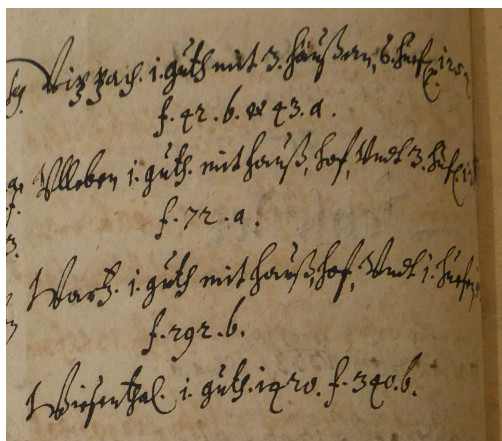 Vizzach. i. guth mit 3. häußern, 6. huf
f. 42. b. et 43. a.
Vlleben i. guth. mit hauß, hof, Vndt 3. huf
f. 72. a.
Wartz. i. guth mit hauß, hof, Vndt i. hufen
f. 292. b.
Wiesenthal. i. guth. 1420. f. 340. b.